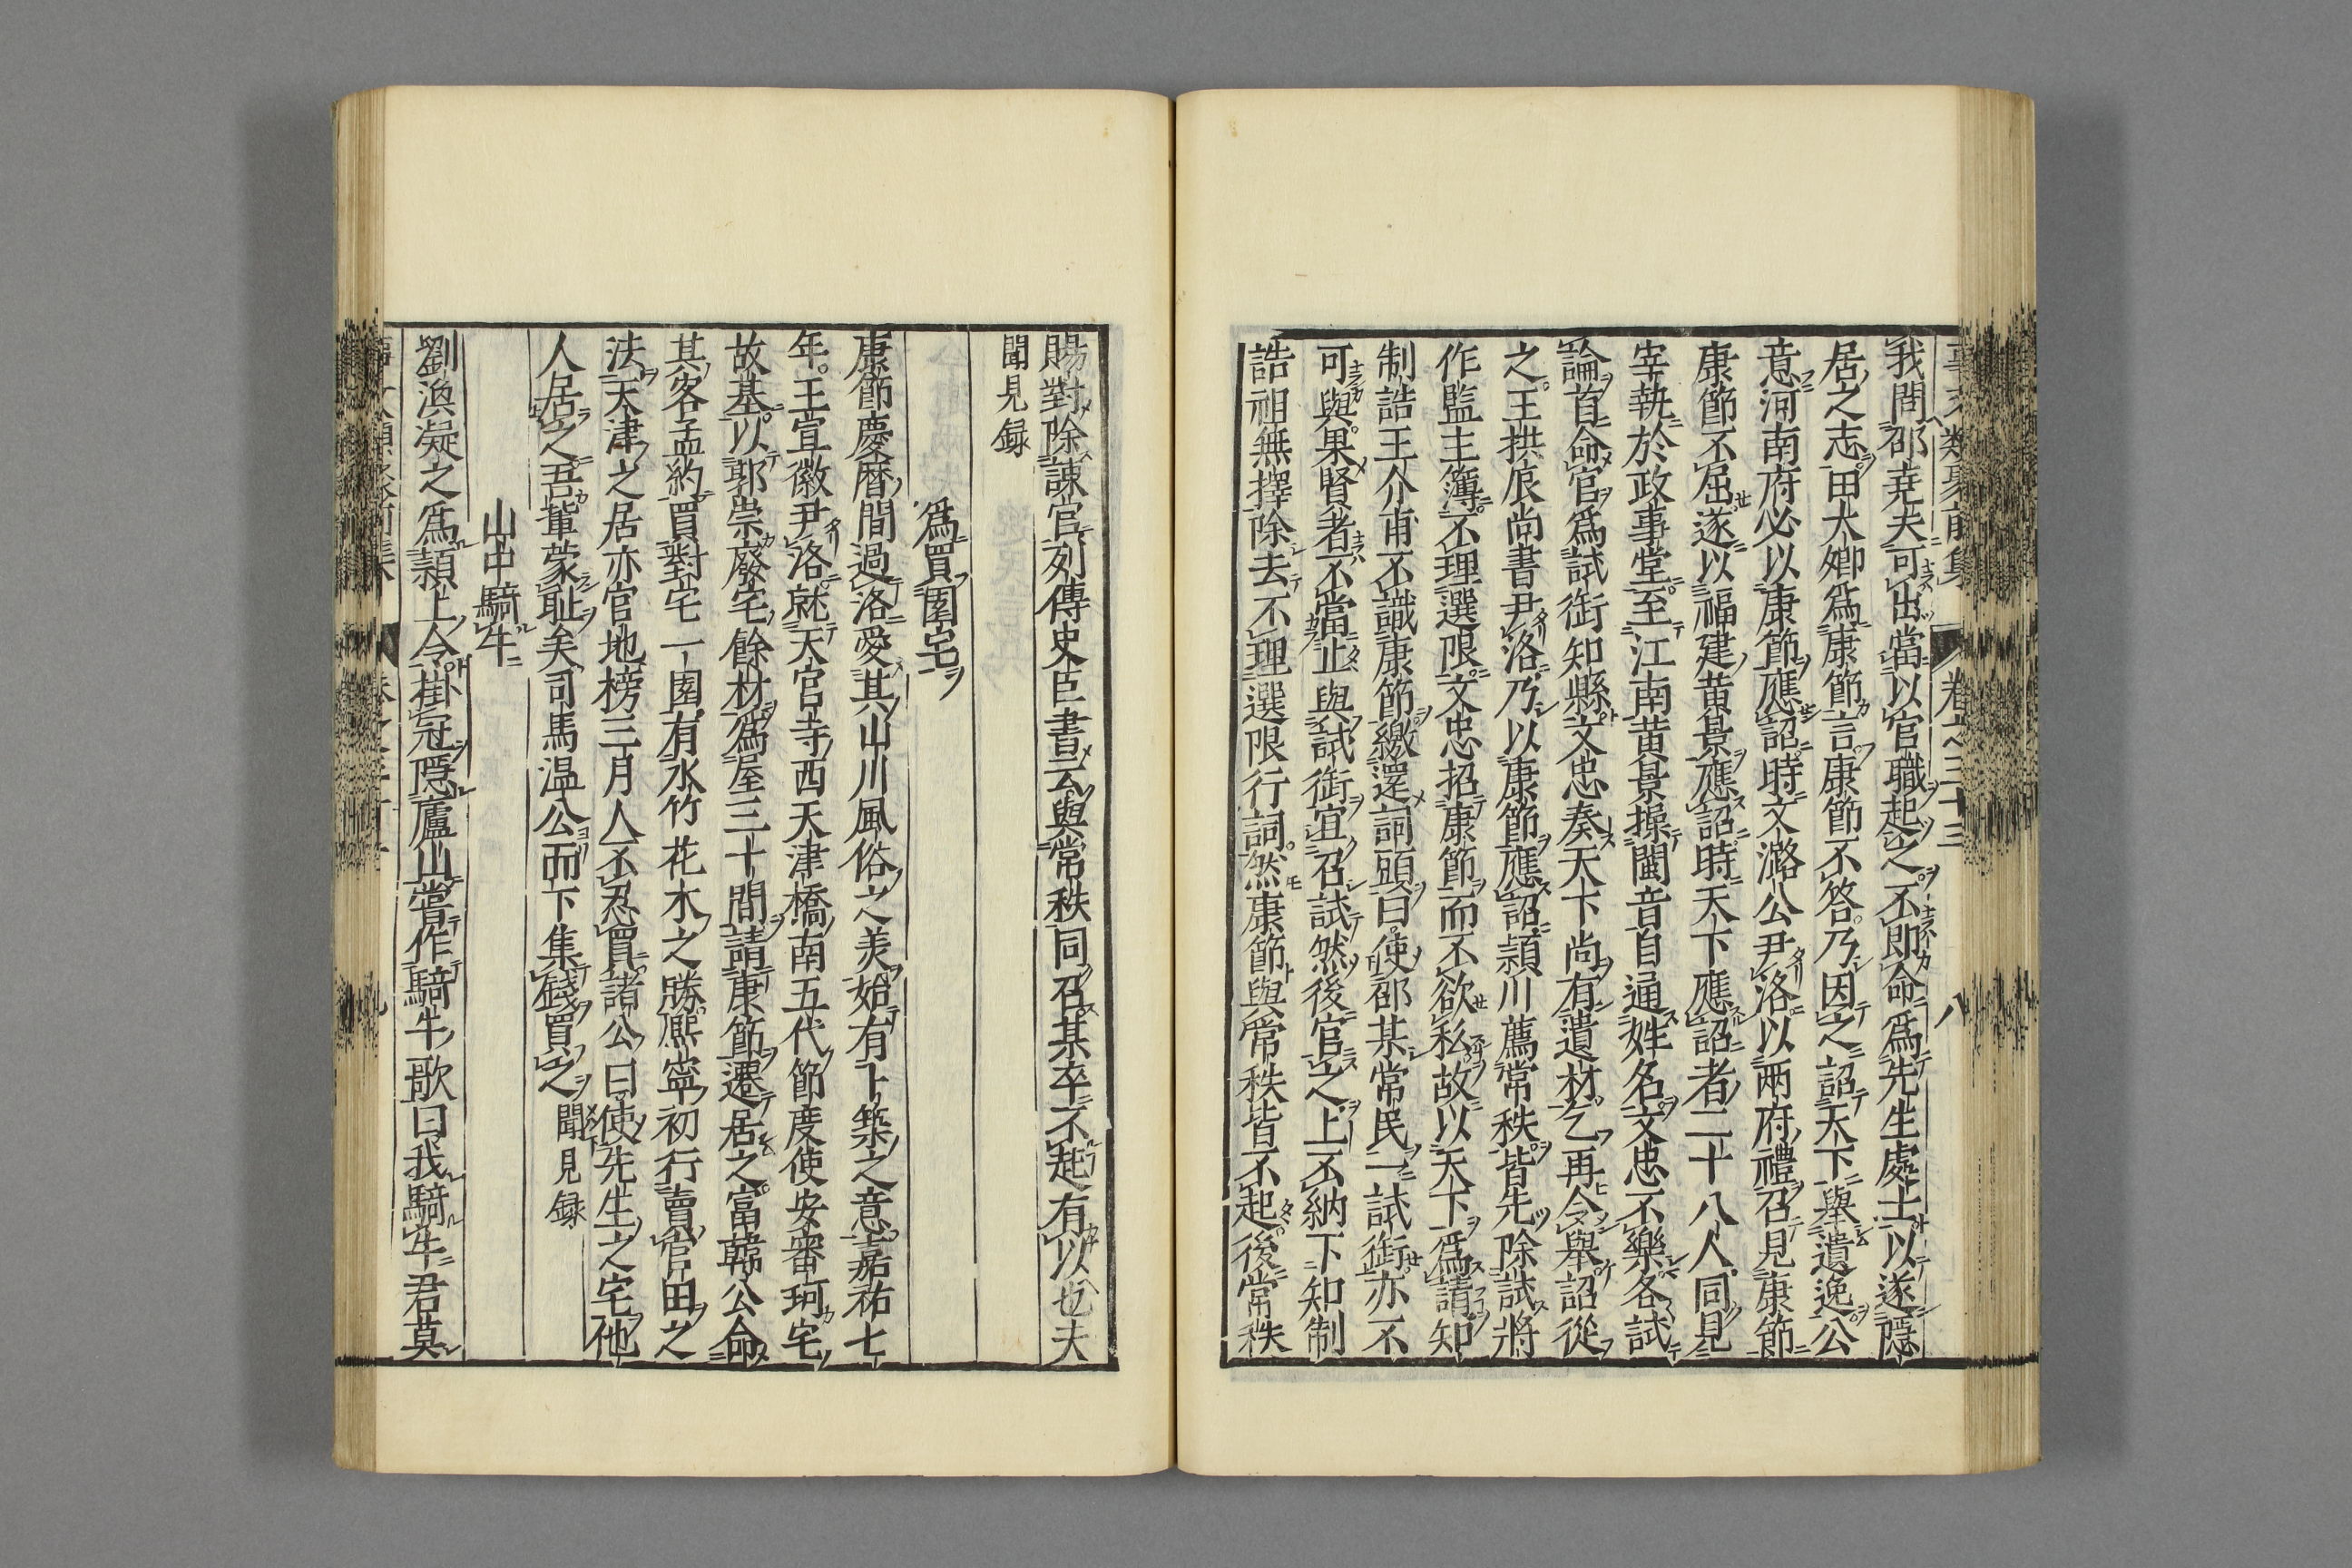 事文類聚前集 卷之三十三 八
我問邵堯夫可出當以官職起之不即命爲先生處士以遂隱
居之志田大卿爲康節言康節不答乃因之詔天下舉遺逸公
意河南府必以康節應詔時文潞公尹洛以兩府禮召見康節
康節不屈遂以福建黄景應詔時天下應詔者二十八人同見
宰執於政事堂至江南黄景操閩音自通姓名文忠不樂各試
論首命官爲試銜知縣文忠奏天下尚有遺材乞再令舉詔從
之王拱辰尚書尹洛乃以康節應詔潁川薦常秩皆先除試將
作監主簿不理選限文忠招康節而不欲私故以天下爲請知
制誥王介甫不識康節繳還詞頭曰使邵某常民一試銜亦不
可與果賢者不當止與試銜宜召試然後官之上不納下知制
誥祖無擇除去不理選限行詞然康節與常秩皆不起後常秩
賜對除諫官列傳史臣書云與常秩同召某卒不起有以也夫
聞見録
爲買園宅
康節慶曆間過洛愛其山川風俗之美始有卜築之意嘉祐七
年王宣徽尹洛就天官寺西天津橋南五代節度使安審珂宅
故基以郭崇廢宅餘材爲屋三十間請康節遷居之富韓公命
其客孟約買對宅一園有水竹花木之勝熈寧初行賣官田之
法天津之居亦官地榜三月人不忍買諸公曰使先生之宅他
人居之吾輩蒙耻矣司馬温公而下集錢買之 聞見録
山中騎牛
劉渙凝之爲潁上令掛冠隱廬山嘗作騎牛歌曰我騎牛君莫